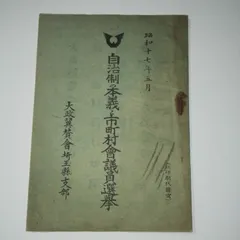 昭和十七年五月
自治制の本義と市町村會議員選擧
大政翼賛會埼玉縣支部